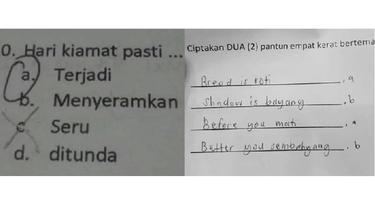 0. Hari kiamat pasti ...
a. Terjadi
b. Menyeramkan
c. Seru
d. ditunda
Ciptakan DUA (2) pantun empat kerat bertema
Bread is roti , a
Shadow is bayang , b
Before you mati , a
Better you sembahyang . b